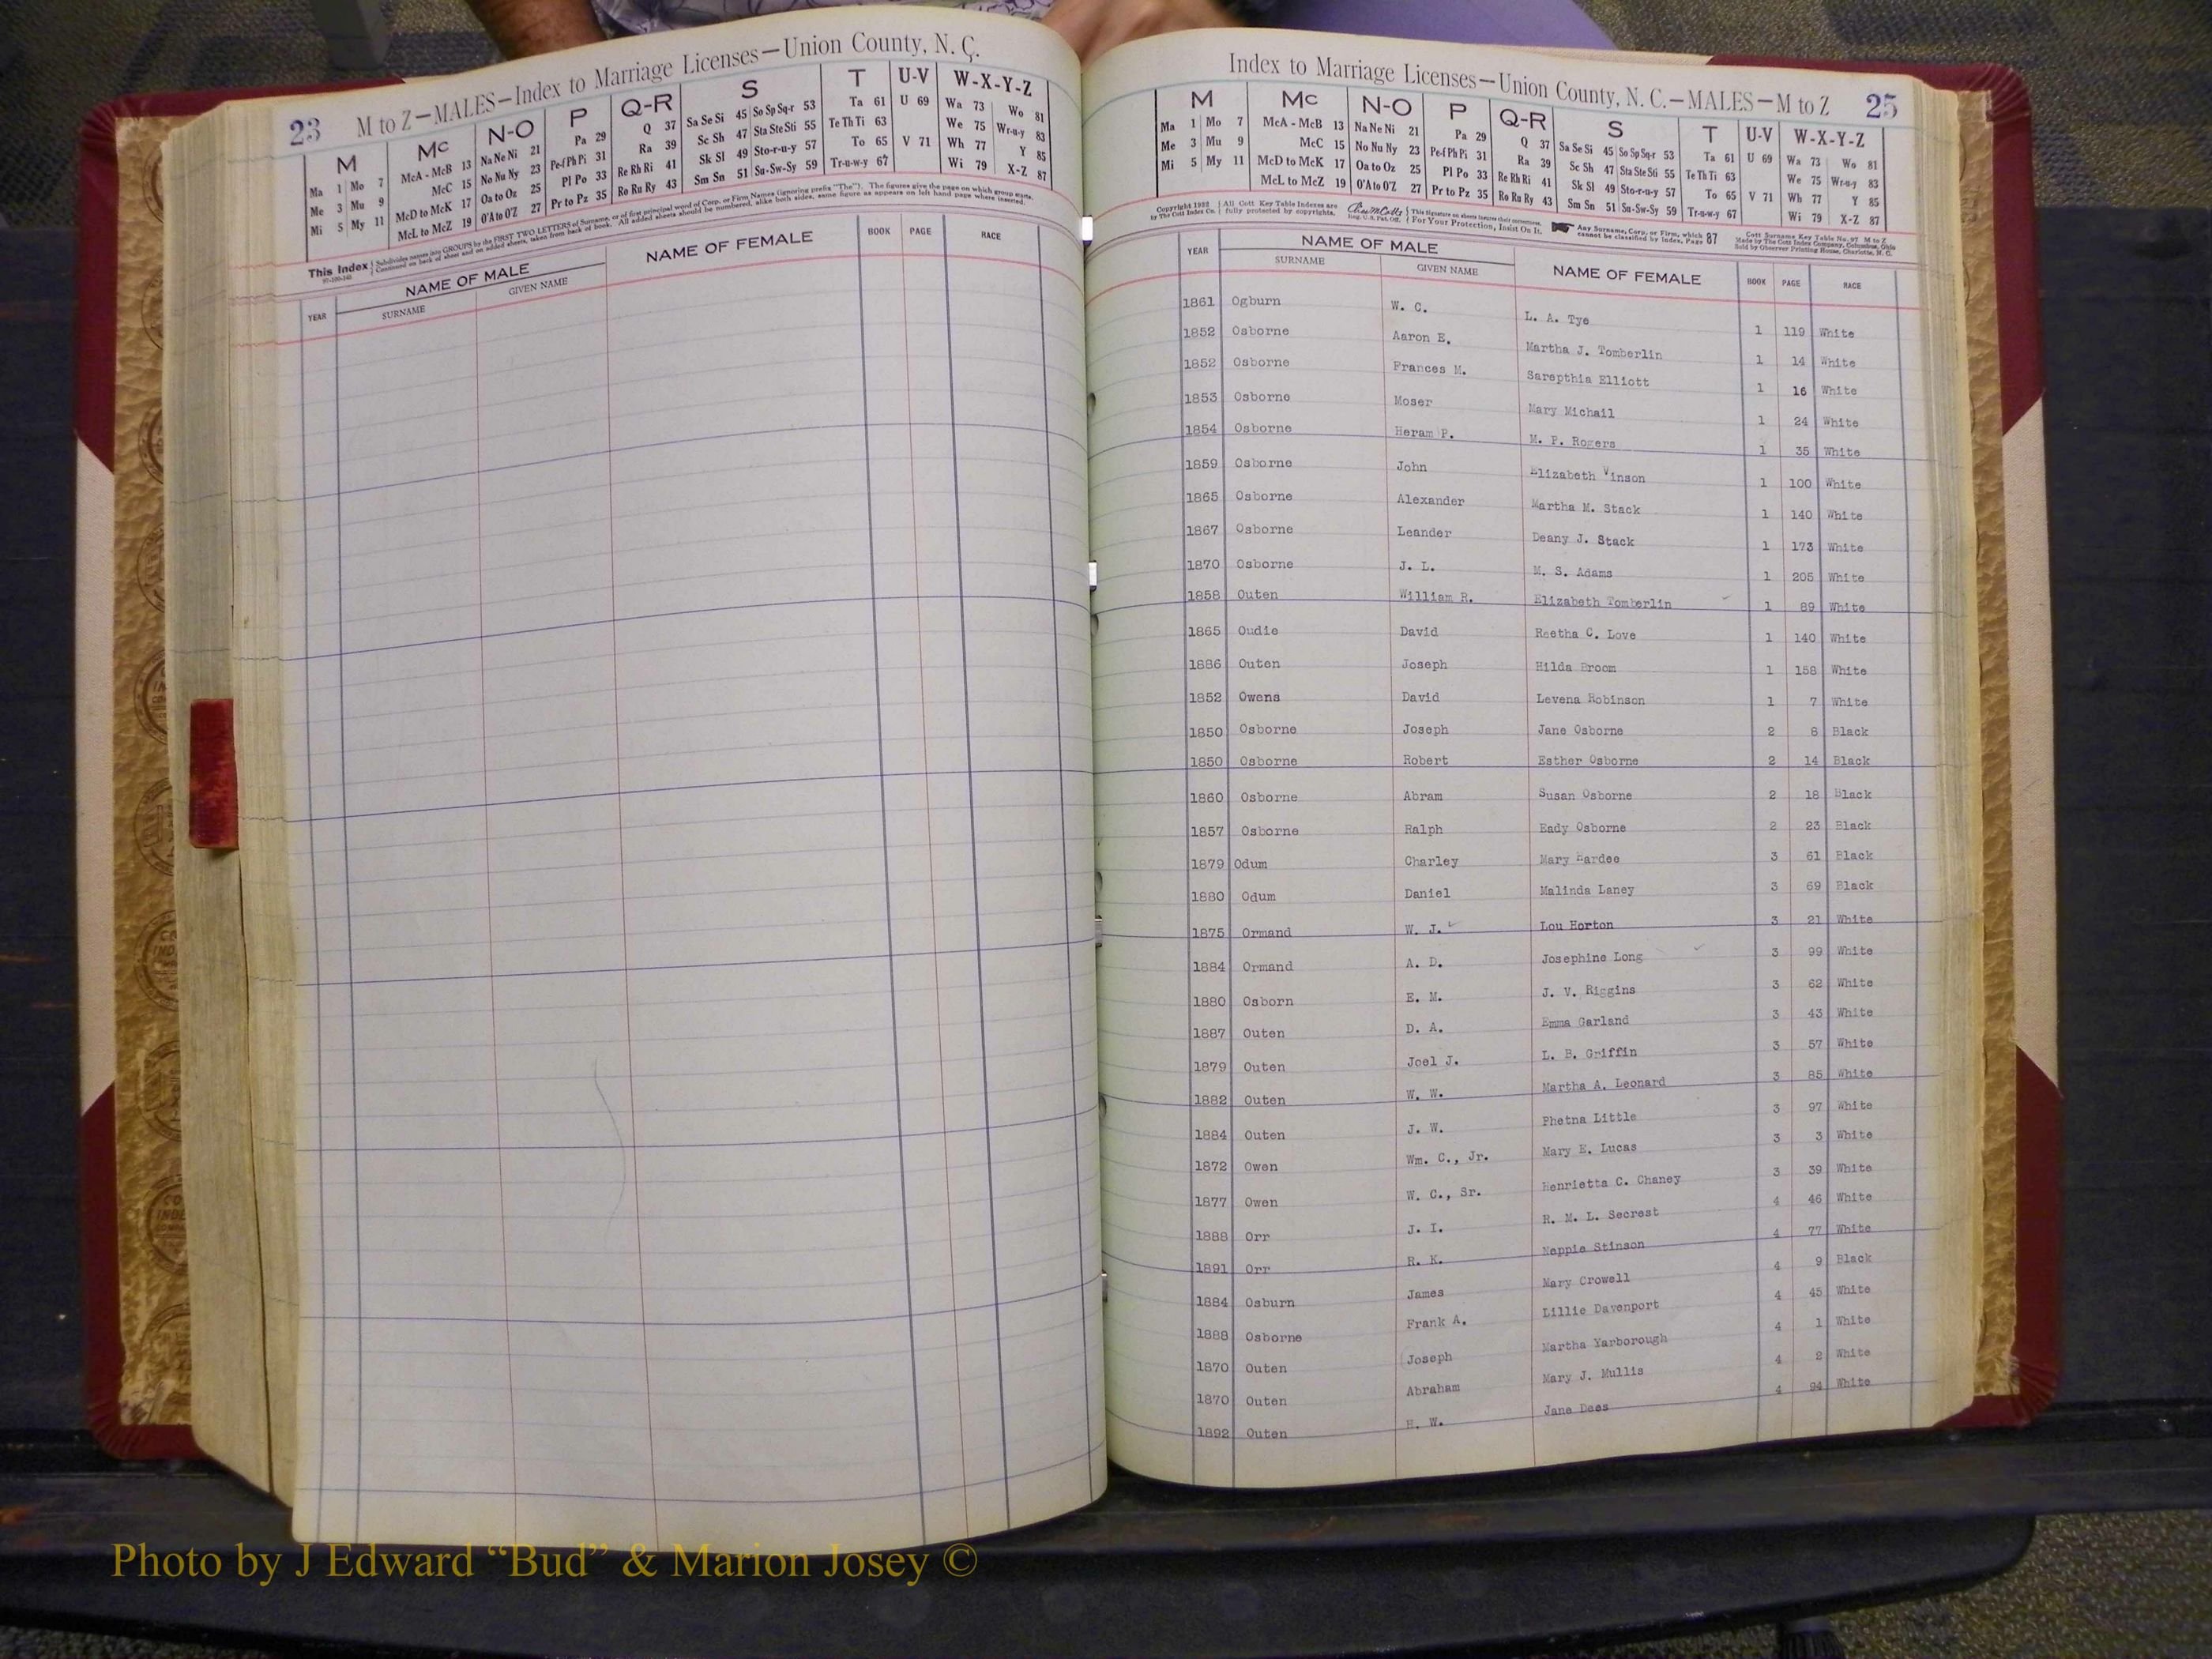 23 M to Z—MALES—Index to Marriage Licenses—Union County, N. C.
M Mc N-O P Q-R S T U-V W-X-Y-Z
Ma 1 Mo 7 McA - McB 13 Na Ne Ni 21 Pa 29 Q 37 Sa Se Si 45 So Sp Sq-r 53 Ta 61 U 69 Wa 73 Wo 81
Me 3 Mu 9 McC 15 No Nu Ny 23 Pe-f Ph Pi 31 Ra 39 Sc Sh 47 Sta Ste Sti 55 Te Th Ti 63 We 75 Wr-u-y 83
Mi 5 My 11 McD to McK 17 Oa to Oz 25 Pl Po 33 Re Rh Ri 41 Sk Sl 49 Sto-r-u-y 57 To 65 V 71 Wh 77 Y 85
McL to McZ 19 O'A to O'Z 27 Pr to Pz 35 Ro Ru Ry 43 Sm Sn 51 Su-Sw-Sy 59 Tr-u-w-y 67 Wi 79 X-Z 87
This Index Subdivides names into GROUPS by the FIRST TWO LETTERS of Surname, or of first principal word of Corp. or Firm Names (ignoring prefix "The"). The figures give the page on which group starts.
Continued on back of sheet and on added sheets, taken from back of book. All added sheets should be numbered, alike both sides, same figure as appears on left hand page where inserted.
YEAR NAME OF MALE NAME OF FEMALE BOOK PAGE RACE
SURNAME GIVEN NAME
Index to Marriage Licenses—Union County, N. C.—MALES—M to Z 25
M Mc N-O P Q-R S T U-V W-X-Y-Z
Ma 1 Mo 7 McA - McB 13 Na Ne Ni 21 Pa 29 Q 37 Sa Se Si 45 So Sp Sq-r 53 Ta 61 U 69 Wa 73 Wo 81
Me 3 Mu 9 McC 15 No Nu Ny 23 Pe-f Ph Pi 31 Ra 39 Sc Sh 47 Sta Ste Sti 55 Te Th Ti 63 We 75 Wr-u-y 83
Mi 5 My 11 McD to McK 17 Oa to Oz 25 Pl Po 33 Re Rh Ri 41 Sk Sl 49 Sto-r-u-y 57 To 65 V 71 Wh 77 Y 85
McL to McZ 19 O'A to O'Z 27 Pr to Pz 35 Ro Ru Ry 43 Sm Sn 51 Su-Sw-Sy 59 Tr-u-w-y 67 Wi 79 X-Z 87
Copyright 1932 by The Cott Index Co. All Cott Key Table Indexes are fully protected by copyrights. For Your Protection, Insist On It. Any Surname, Corp. or Firm, which cannot be classified by Index, Page 87
Cott Surname Key Table No. 97 M to Z Made by The Cott Index Company, Columbus, Ohio Sold by Observer Printing House, Charlotte, N. C.
YEAR NAME OF MALE NAME OF FEMALE BOOK PAGE RACE
SURNAME GIVEN NAME
1861 Ogburn W. C. L. A. Tye 1 119 White
1852 Osborne Aaron E. Martha J. Tomberlin 1 14 White
1852 Osborne Frances M. Sarepthia Elliott 1 16 White
1853 Osborne Moser Mary Michail 1 24 White
1854 Osborne Heram P. M. P. Rogers 1 35 White
1859 Osborne John Elizabeth Vinson 1 100 White
1865 Osborne Alexander Martha M. Stack 1 140 White
1867 Osborne Leander Deany J. Stack 1 173 White
1870 Osborne J. L. M. S. Adams 1 205 White
1858 Outen William R. Elizabeth Tomberlin 1 89 White
1865 Oudie David Reetha C. Love 1 140 White
1886 Outen Joseph Hilda Broom 1 158 White
1852 Owens David Levena Robinson 1 7 White
1850 Osborne Joseph Jane Osborne 2 8 Black
1850 Osborne Robert Esther Osborne 2 14 Black
1860 Osborne Abram Susan Osborne 2 18 Black
1857 Osborne Ralph Eady Osborne 2 23 Black
1879 Odum Charley Mary Hardee 3 61 Black
1880 Odum Daniel Malinda Laney 3 69 Black
1875 Ormand W. J. Lou Horton 3 21 White
1884 Ormand A. D. Josephine Long 3 99 White
1880 Osborn E. M. J. V. Riggins 3 62 White
1887 Outen D. A. Emma Garland 3 43 White
1879 Outen Joel J. L. B. Griffin 3 57 White
1882 Outen W. W. Martha A. Leonard 3 85 White
1884 Outen J. W. Phetna Little 3 97 White
1872 Owen Wm. C., Jr. Mary E. Lucas 3 3 White
1877 Owen W. C., Sr. Henrietta C. Chaney 3 39 White
1888 Orr J. I. R. M. L. Secrest 4 46 White
1891 Orr R. K. Neppie Stinson 4 77 White
1884 Osburn James Mary Crowell 4 9 Black
1888 Osborne Frank A. Lillie Davenport 4 45 White
1870 Outen Joseph Martha Yarborough 4 1 White
1870 Outen Abraham Mary J. Mullis 4 2 White
1892 Outen H. W. Jane Dees 4 94 White
Photo by J Edward “Bud” & Marion Josey ©